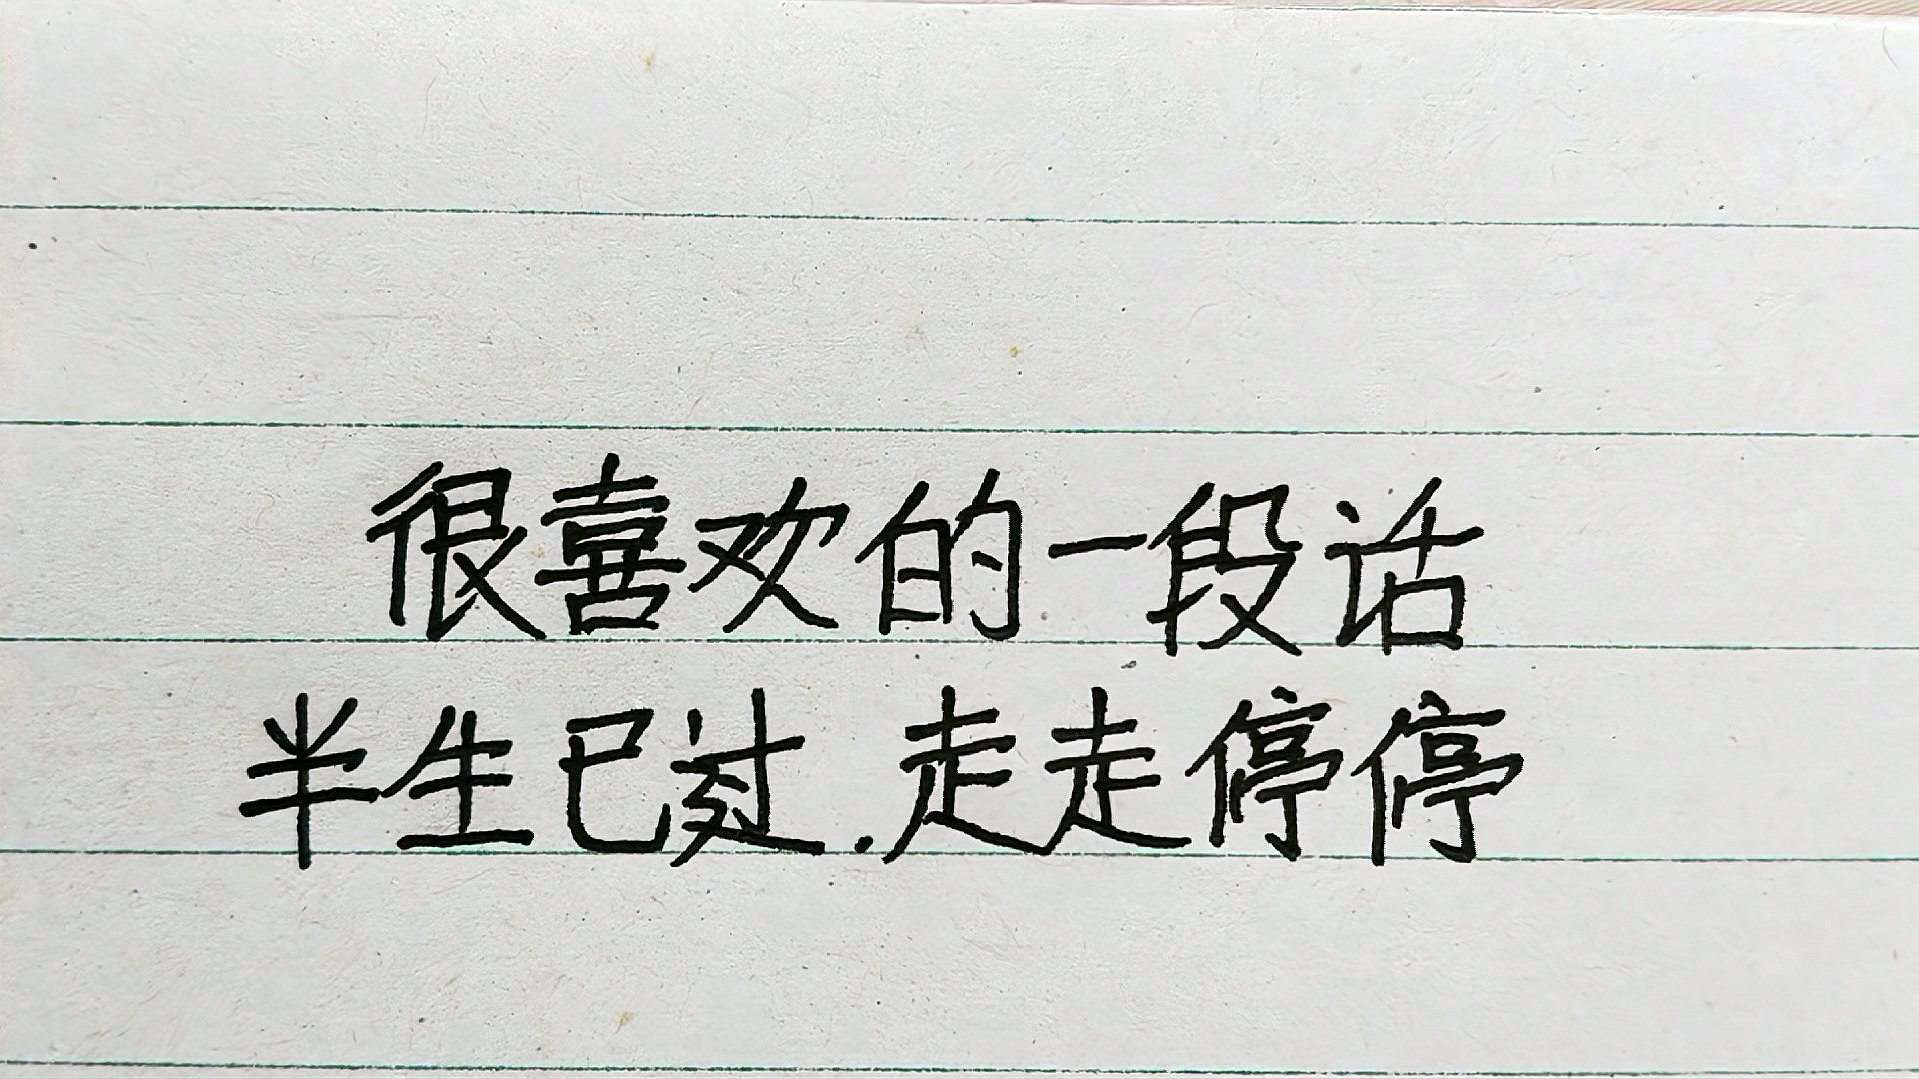 很喜欢的一段话
半生已过.走走停停